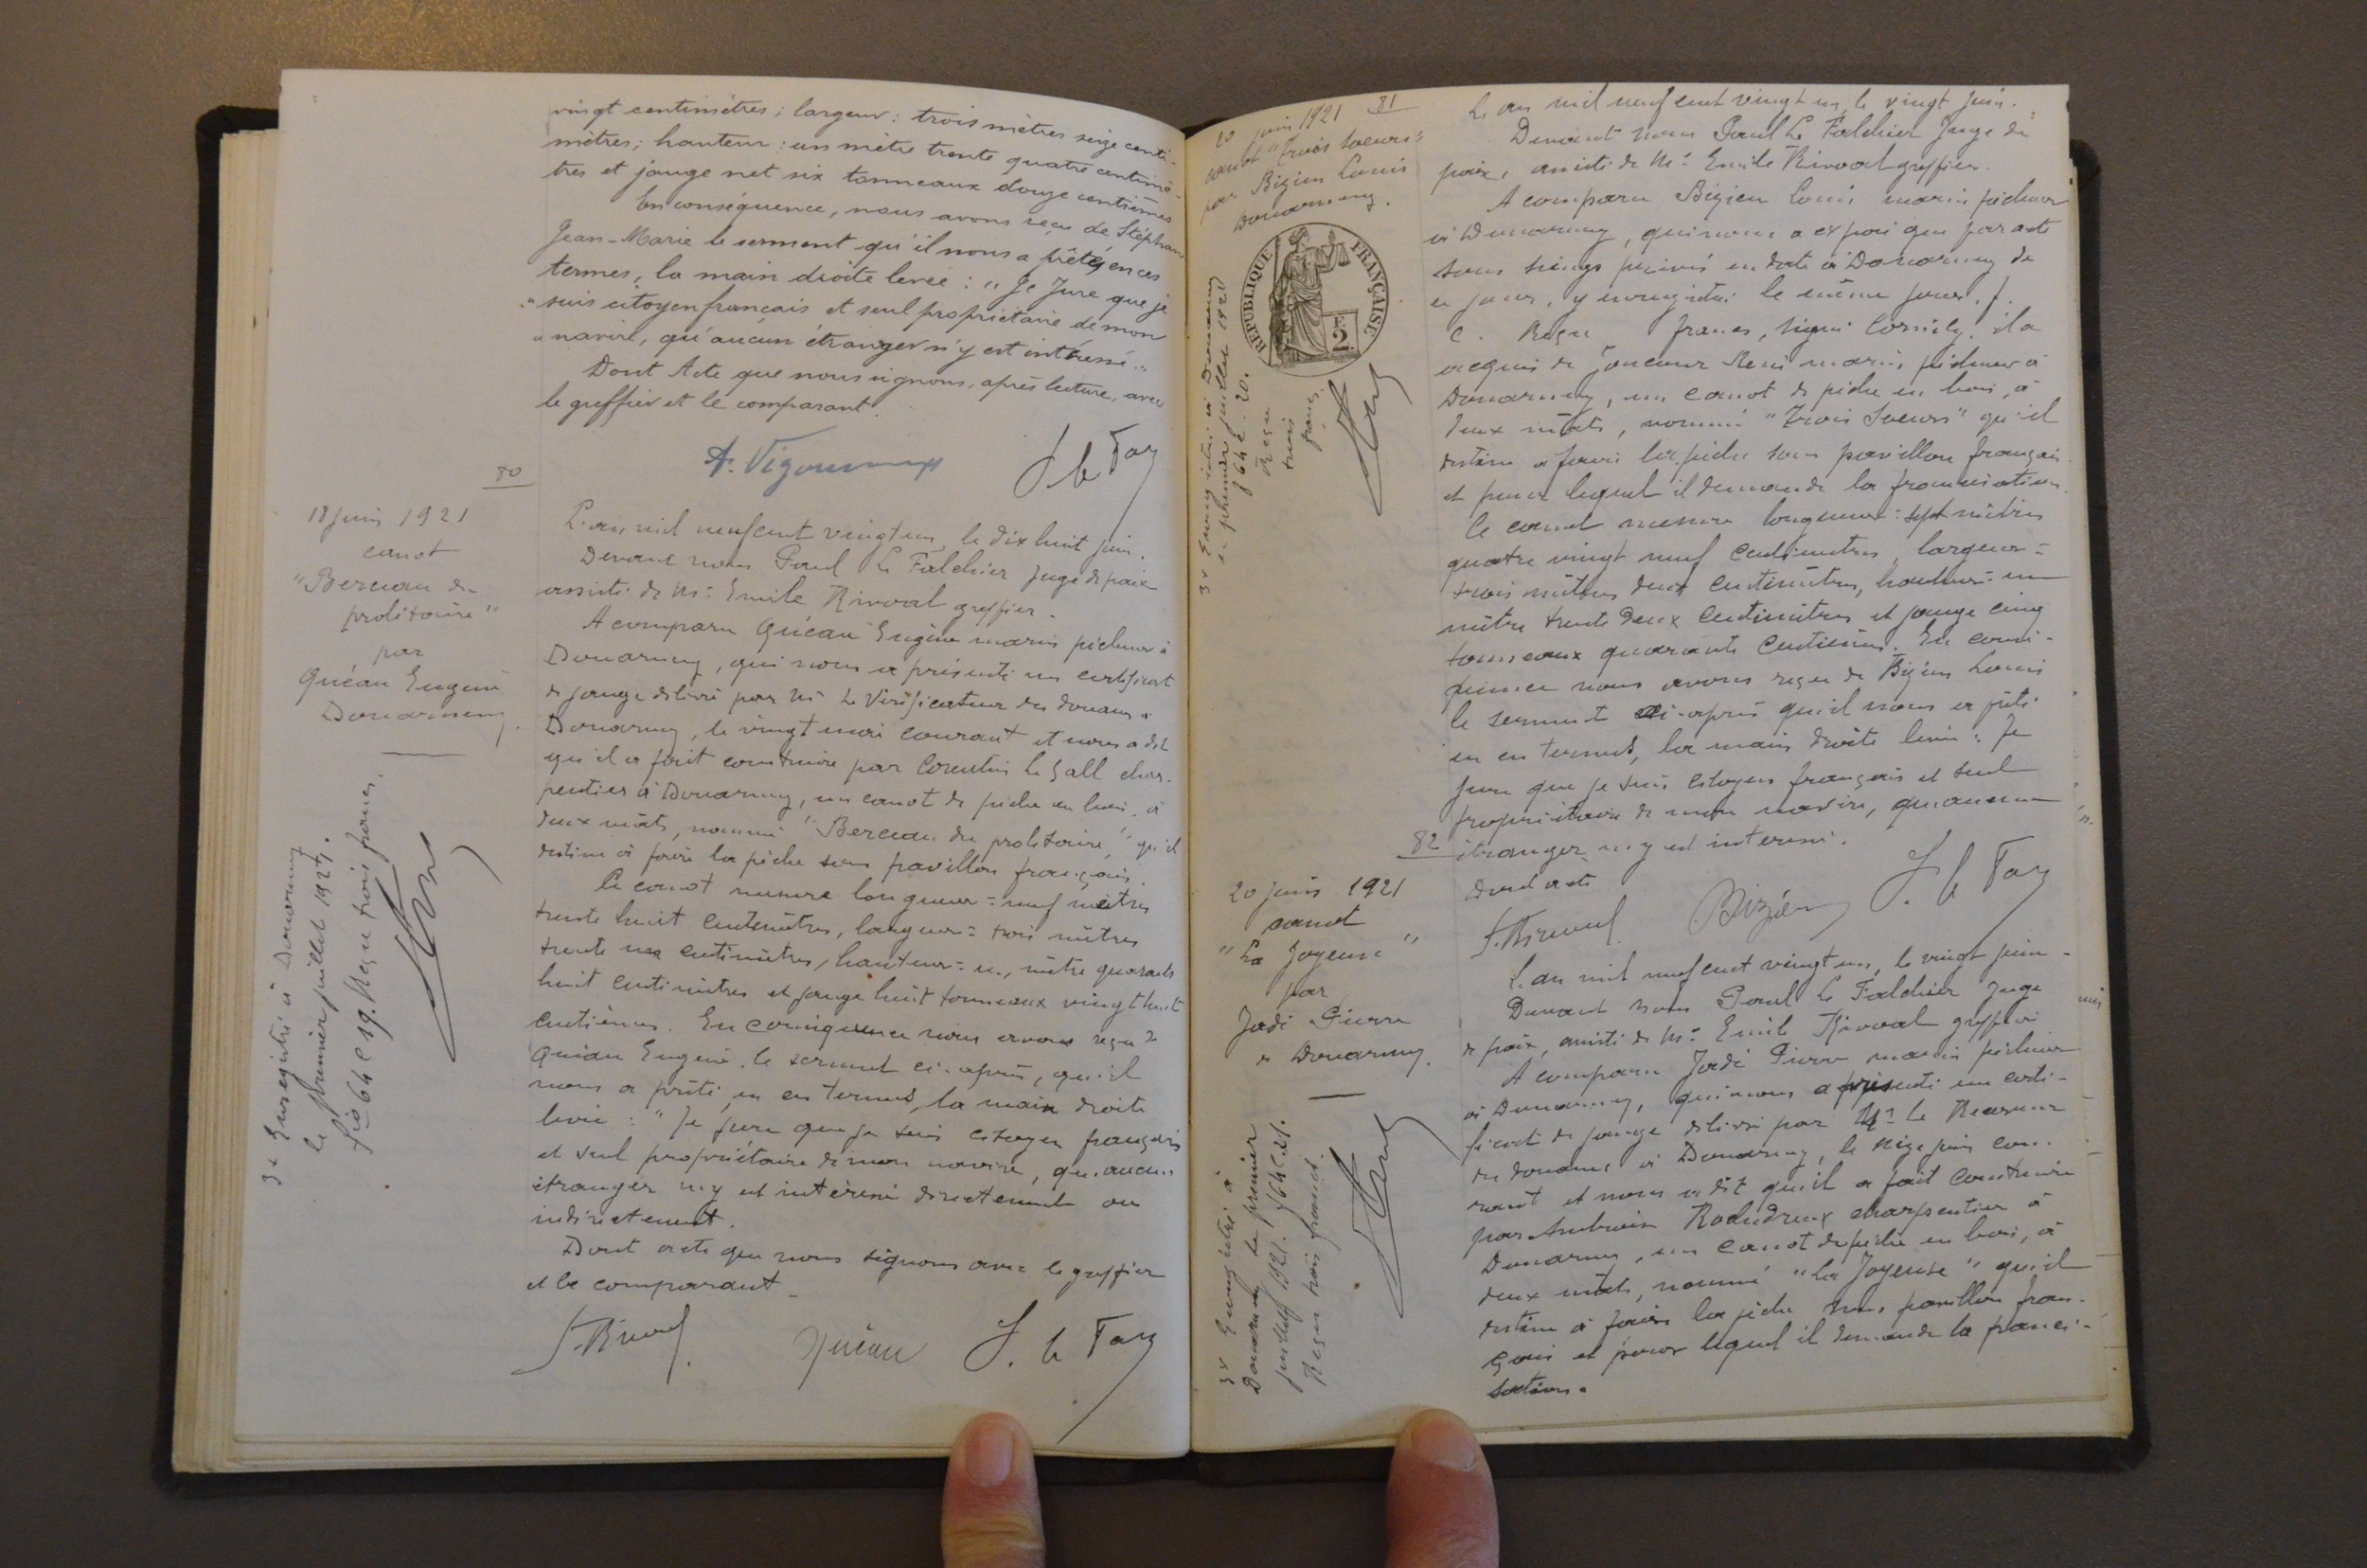 vingt centimètres; largeur: trois mètres seize centi-
mètres; hauteur: un mètre trente quatre centimè-
tres et jauge net six tonneaux douze centièmes
En conséquence, nous avons reçu de Stéphan
Jean-Marie le serment qu'il nous a prêté, en ces
termes, la main droite levée: "Je Jure que je
"suis citoyen français et seul propriétaire de mon
"navire, qu'aucun étranger n'y est intéressé."
Dont Acte que nous signons, après lecture, avec
le greffier et le comparant.
80
18 juin 1921
canot
"Berceau du
prolétaire"
par
Quéau Eugène
Douarnenez.
3e Enregistré à Douarnenez
le premier juillet 1921.
fio 64 c 19. Reçu trois francs.
L'an mil neuf cent vingt un, le dix huit juin.
Devant nous Paul Le Falchier juge de paix
assisté de Mr Emile Rivoal greffier.
A comparu Quéau Eugène marin pêcheur à
Douarnenez, qui nous a présenté un certificat
de jauge délivré par Mr Le Vérificateur des douanes à
Douarnenez, le vingt mai courant et nous a dit
qu'il a fait construire par Corentin Le Gall char-
pentier à Douarnenez, un canot de pêche en bois, à
deux mâts, nommé "Berceau du prolétaire", qu'il
destine à faire la pêche sous pavillon français.
Ce canot mesure longueur = neuf mètres
trente huit centimètres, largeur = trois mètres
trente un centimètres, hauteur = un mètre quarante
huit centimètres et jauge huit tonneaux vingt huit
centièmes. En conséquence nous avons reçu de
Quéau Eugène le serment ci-après, qu'il
nous a prêté en ces termes, la main droite
levée: "Je jure que je suis citoyen français
et seul propriétaire de mon navire, qu'aucun
étranger n'y est intéressé directement ou
indirectement.
Dont acte que nous signons avec le greffier
et le comparant.
Quéau
81
20 juin 1921
canot "Trois Soeurs"
par Bizien Louis
Douarnenez.
RÉPUBLIQUE FRANÇAISE
F.
2.
3e Enregistré à Douarnenez
le premier juillet 1921
f 64 c. 20.
Reçu
trois
francs
L'an mil neuf cent vingt un, le vingt juin.
Devant nous Paul Le Falchier Juge de
paix, assisté de Mr Emile Rivoal greffier.
A comparu Bizien Louis marin pêcheur
à Douarnenez, qui nous a exposé que par acte
sous seings privés en date à Douarnenez de
ce jour, y enregistré le même jour, f.
C. Reçu francs, signé il a
acquis de René marin pêcheur à
Douarnenez, un canot de pêche en bois, à
deux mâts, nommé "Trois Soeurs" qu'il
destine à faire la pêche sous pavillon français
et pour lequel il demande la francisation.
Ce canot mesure longueur: sept mètres
quatre vingt neuf centimètres, largeur =
trois mètres deux centimètres, hauteur = un
mètre trente deux centimètres et jauge cinq
tonneaux quarante centièmes. En consé-
quence nous avons reçu de Bizien Louis
le serment ci-après qu'il nous a prêté
en ces termes, la main droite levée: Je
jure que je suis citoyen français et seul
propriétaire de mon navire, qu'aucun
étranger n'y est intéressé.
Dont acte
Bizien
82
20 juin 1921
canot
"La Joyeuse"
par
Jadé Pierre
de Douarnenez.
3e Enregistré à
Douarnenez le premier
juillet 1921. f 64 c. 21.
Reçu trois francs.
L'an mil neuf cent vingt un, le vingt juin.
Devant nous Paul Le Falchier Juge
de paix, assisté de Mr Emile Rivoal greffier
A comparu Jadé Pierre marin pêcheur
à Douarnenez, qui nous a présenté un certi-
ficat de jauge délivré par Mr le Receveur
des douanes à Douarnenez, le seize juin cou-
rant et nous a dit qu'il a fait construire
par charpentier à
Douarnenez, un canot de pêche en bois, à
deux mâts, nommé "La Joyeuse" qu'il
destine à faire la pêche sous pavillon fran-
çais et pour lequel il demande la franci-
sation.